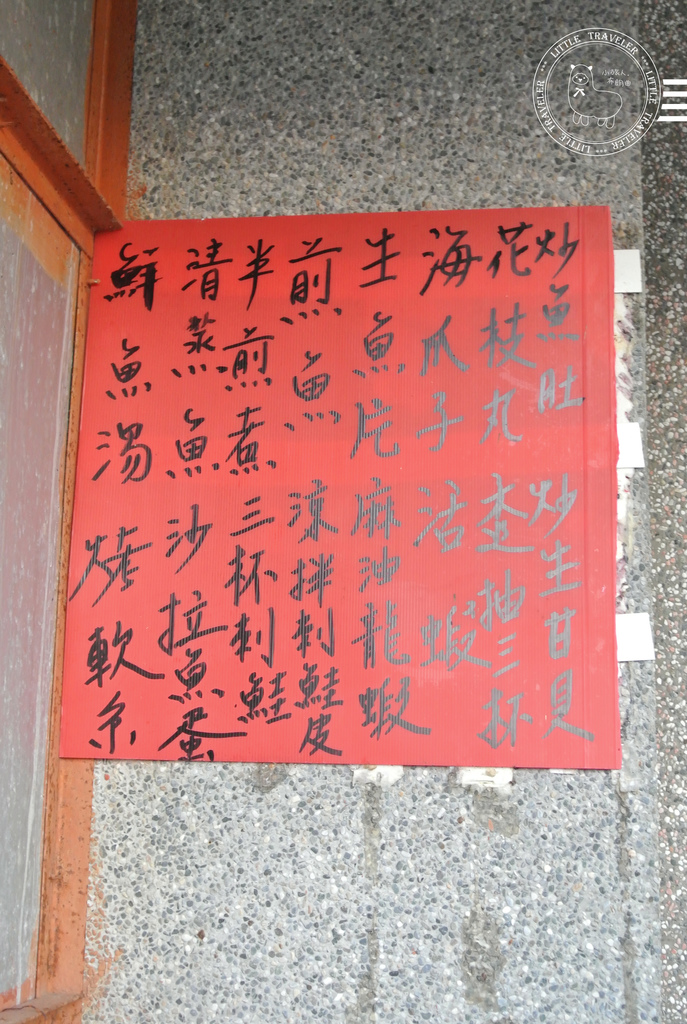 炒魚肚 炒生甘貝
花枝丸 抽三杯
海爪子 活蝦
生魚片 麻油龍蝦
煎魚 涼拌刺鮭皮
半煎煮 三杯刺鮭
清蒸魚 沙拉魚蛋
鮮魚湯 烤軟糸
LITTLE TRAVELER *** LITTLE TRAVELER *** LITTLE TRAVELER ***